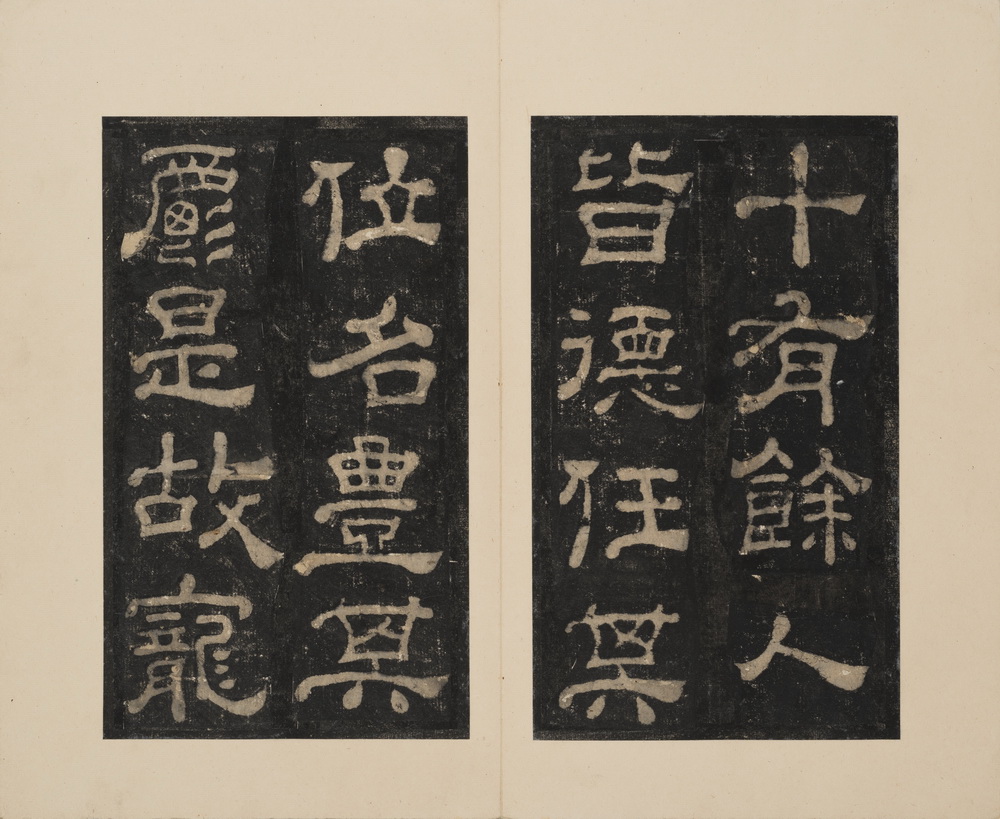 十有餘人
皆德任其
位名豊其
爵是故寵